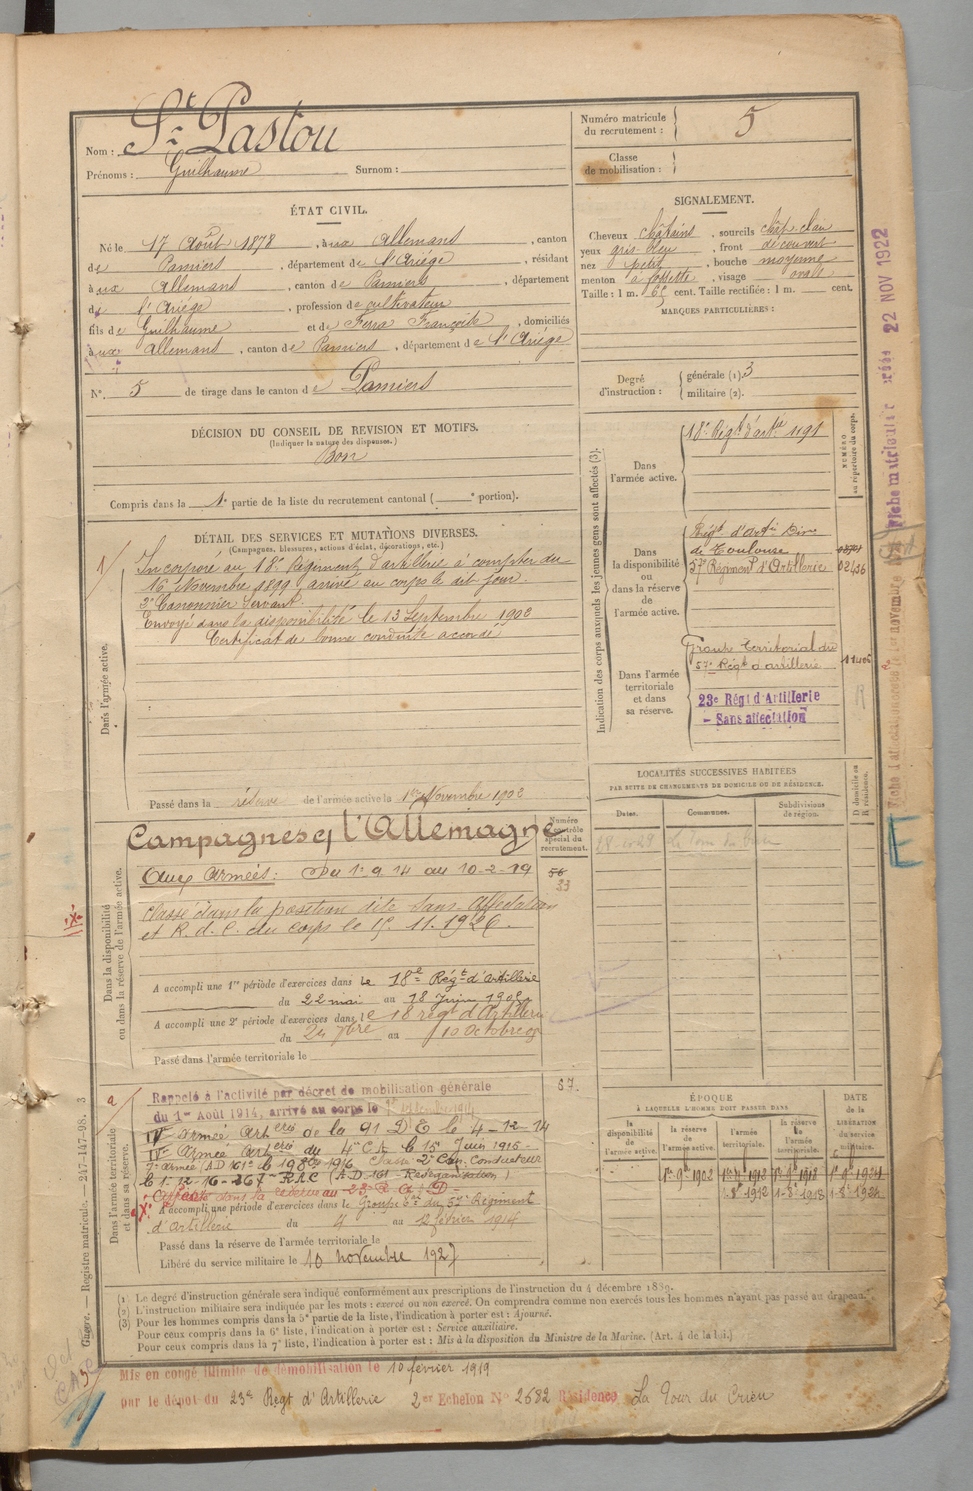 Nom : St Pastou
Prénoms : Guilhaume Surnom :
Numéro matricule du recrutement : 5
Classe de mobilisation :
ÉTAT CIVIL.
Né le 17 Août 1878, à ux Allemans, canton
de Pamiers, département de l'Ariège, résidant
à ux Allemans, canton de Pamiers, département
de l'Ariège, profession de cultivateur
fils de Guilhaume et de Ferra Françoise, domiciliés
à ux Allemans, canton de Pamiers, département de l'Ariège
N° 5 de tirage dans le canton de Pamiers
SIGNALEMENT.
Cheveux châtains, sourcils chât. clair
yeux gris bleu, front découvert
nez petit, bouche moyenne
menton à fossette, visage ovale
Taille : 1 m. 65 cent. Taille rectifiée : 1 m. cent.
MARQUES PARTICULIÈRES :
Degré d'instruction : générale (1). 3
militaire (2).
DÉCISION DU CONSEIL DE REVISION ET MOTIFS.
(Indiquer la nature des dispenses.)
Bon
Compris dans la 1e partie de la liste du recrutement cantonal ( e portion).
DÉTAIL DES SERVICES ET MUTATIONS DIVERSES.
(Campagnes, blessures, actions d'éclat, décorations, etc.)
Dans l'armée active.
Incorporé au 18e Régiment d'artillerie à compter du
16 Novembre 1899, arrivé au corps le dit jour.
2e Canonnier Servant.
Envoyé dans la disponibilité le 13 Septembre 1902
Certificat de bonne conduite accordé
Passé dans la réserve de l'armée active le 1er Novembre 1902
Indication des corps auxquels les jeunes gens sont affectés (3).
NUMÉRO au répertoire du corps.
Dans l'armée active.
18e Régt d'artie 1191
Dans la disponibilité ou dans la réserve de l'armée active.
Régt d'artie
de Toulouse
57e Régiment d'Artillerie 02436
Dans l'armée territoriale et dans sa réserve.
Groupe territorial du
57e Régt d'artillerie
23e Régt d'Artillerie
- Sans affectation
LOCALITÉS SUCCESSIVES HABITÉES
PAR SUITE DE CHANGEMENTS DE DOMICILE OU DE RÉSIDENCE.
Dates. Communes. Subdivisions de région. D domicile ou R résidence.
Campagnes c/ l'Allemagne
Numéro au contrôle spécial du recrutement.
Dans la disponibilité ou dans la réserve de l'armée active.
Aux Armées : Du 1-9-14 au 10-2-19
56
33
classé dans la position dite Sans Affectation
et R. d. C. du corps le 15. 11. 1926.
A accompli une 1re période d'exercices dans le 18e Régt d'Artillerie
du 22 mai au 18 Juin
A accompli une 2e période d'exercices dans le 18 régt d'Artillerie
du 24 7bre au 10 Octobre 08
Passé dans l'armée territoriale le
Dans l'armée territoriale et dans sa réserve.
57.
Rappelé à l'activité par décret de mobilisation générale
du 1er Août 1914, arrivé au corps le
IVe armée Arterie de la 91 D E le 4-12-14
IVe Armée Arterie du 4e CA le 15 Juin 1915
le 1-12-16-267e RAC (A.D-161 Réorganisation)
Affecté dans la réserve au 23e R. A.
A accompli une période d'exercices dans le Groupe du 57e Régiment
d'Artillerie du 4 au 12 février 1914
Passé dans la réserve de l'armée territoriale le
Libéré du service militaire le 10 novembre 1927
ÉPOQUE
À LAQUELLE L'HOMME DOIT PASSER DANS
la disponibilité de l'armée active. la réserve de l'armée active. l'armée territoriale. la réserve de l'armée territoriale.
DATE de la LIBÉRATION du service militaire.
(1) Le degré d'instruction générale sera indiqué conformément aux prescriptions de l'instruction du 4 décembre 1889.
(2) L'instruction militaire sera indiquée par les mots : exercé ou non exercé. On comprendra comme non exercés tous les hommes n'ayant pas passé au drapeau.
(3) Pour les hommes compris dans la 5e partie de la liste, l'indication à porter est : Ajourné.
Pour ceux compris dans la 6e liste, l'indication à porter est : Service auxiliaire.
Pour ceux compris dans la 7e liste, l'indication à porter est : Mis à la disposition du Ministre de la Marine. (Art. 4 de la loi.)
Mis en congé illimité de démobilisation le 10 février 1919
par le dépot du 23e Regt d'Artillerie 2er Echelon N° 2682 Résidence La Tour du Crieu
Guerre. — Registre matricule. — 247-147-98. 3
22 NOV 1922